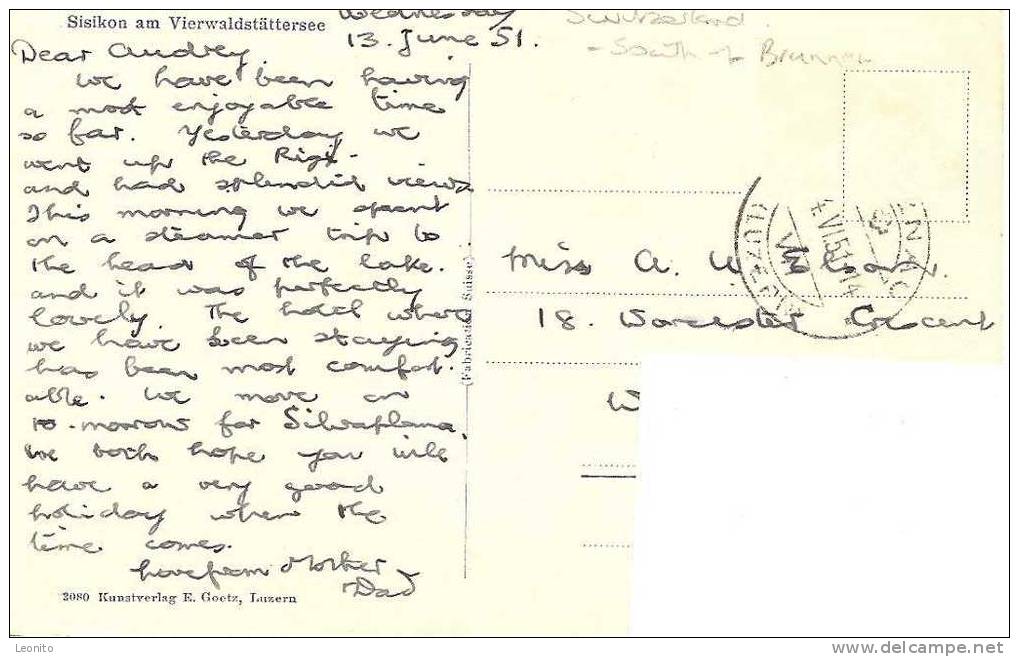 Sisikon am Vierwaldstättersee
Wednesday
13. June 51.
Switzerland.
- South of Brunnen
Dear Audrey
We have been having
a most enjoyable time
so far. Yesterday we
went up the Rigi-
and had splendid views
This morning we spent
on a steamer trip to
the head of the lake.
and it was perfectly
lovely. The hotel where
we have been staying
has been most comfort-
able. We move on
to-morrow for Silvaplana.
We both hope you will
have a very good
holiday when the
time comes.
Love from Mother
Dad
2080 Kunstverlag E. Goetz, Luzern
(Fabrication Suisse)
Miss A.
18. Worcester Crescent
W
VI.51-14
(LUZERN)
Leonito
www.delcampe.net